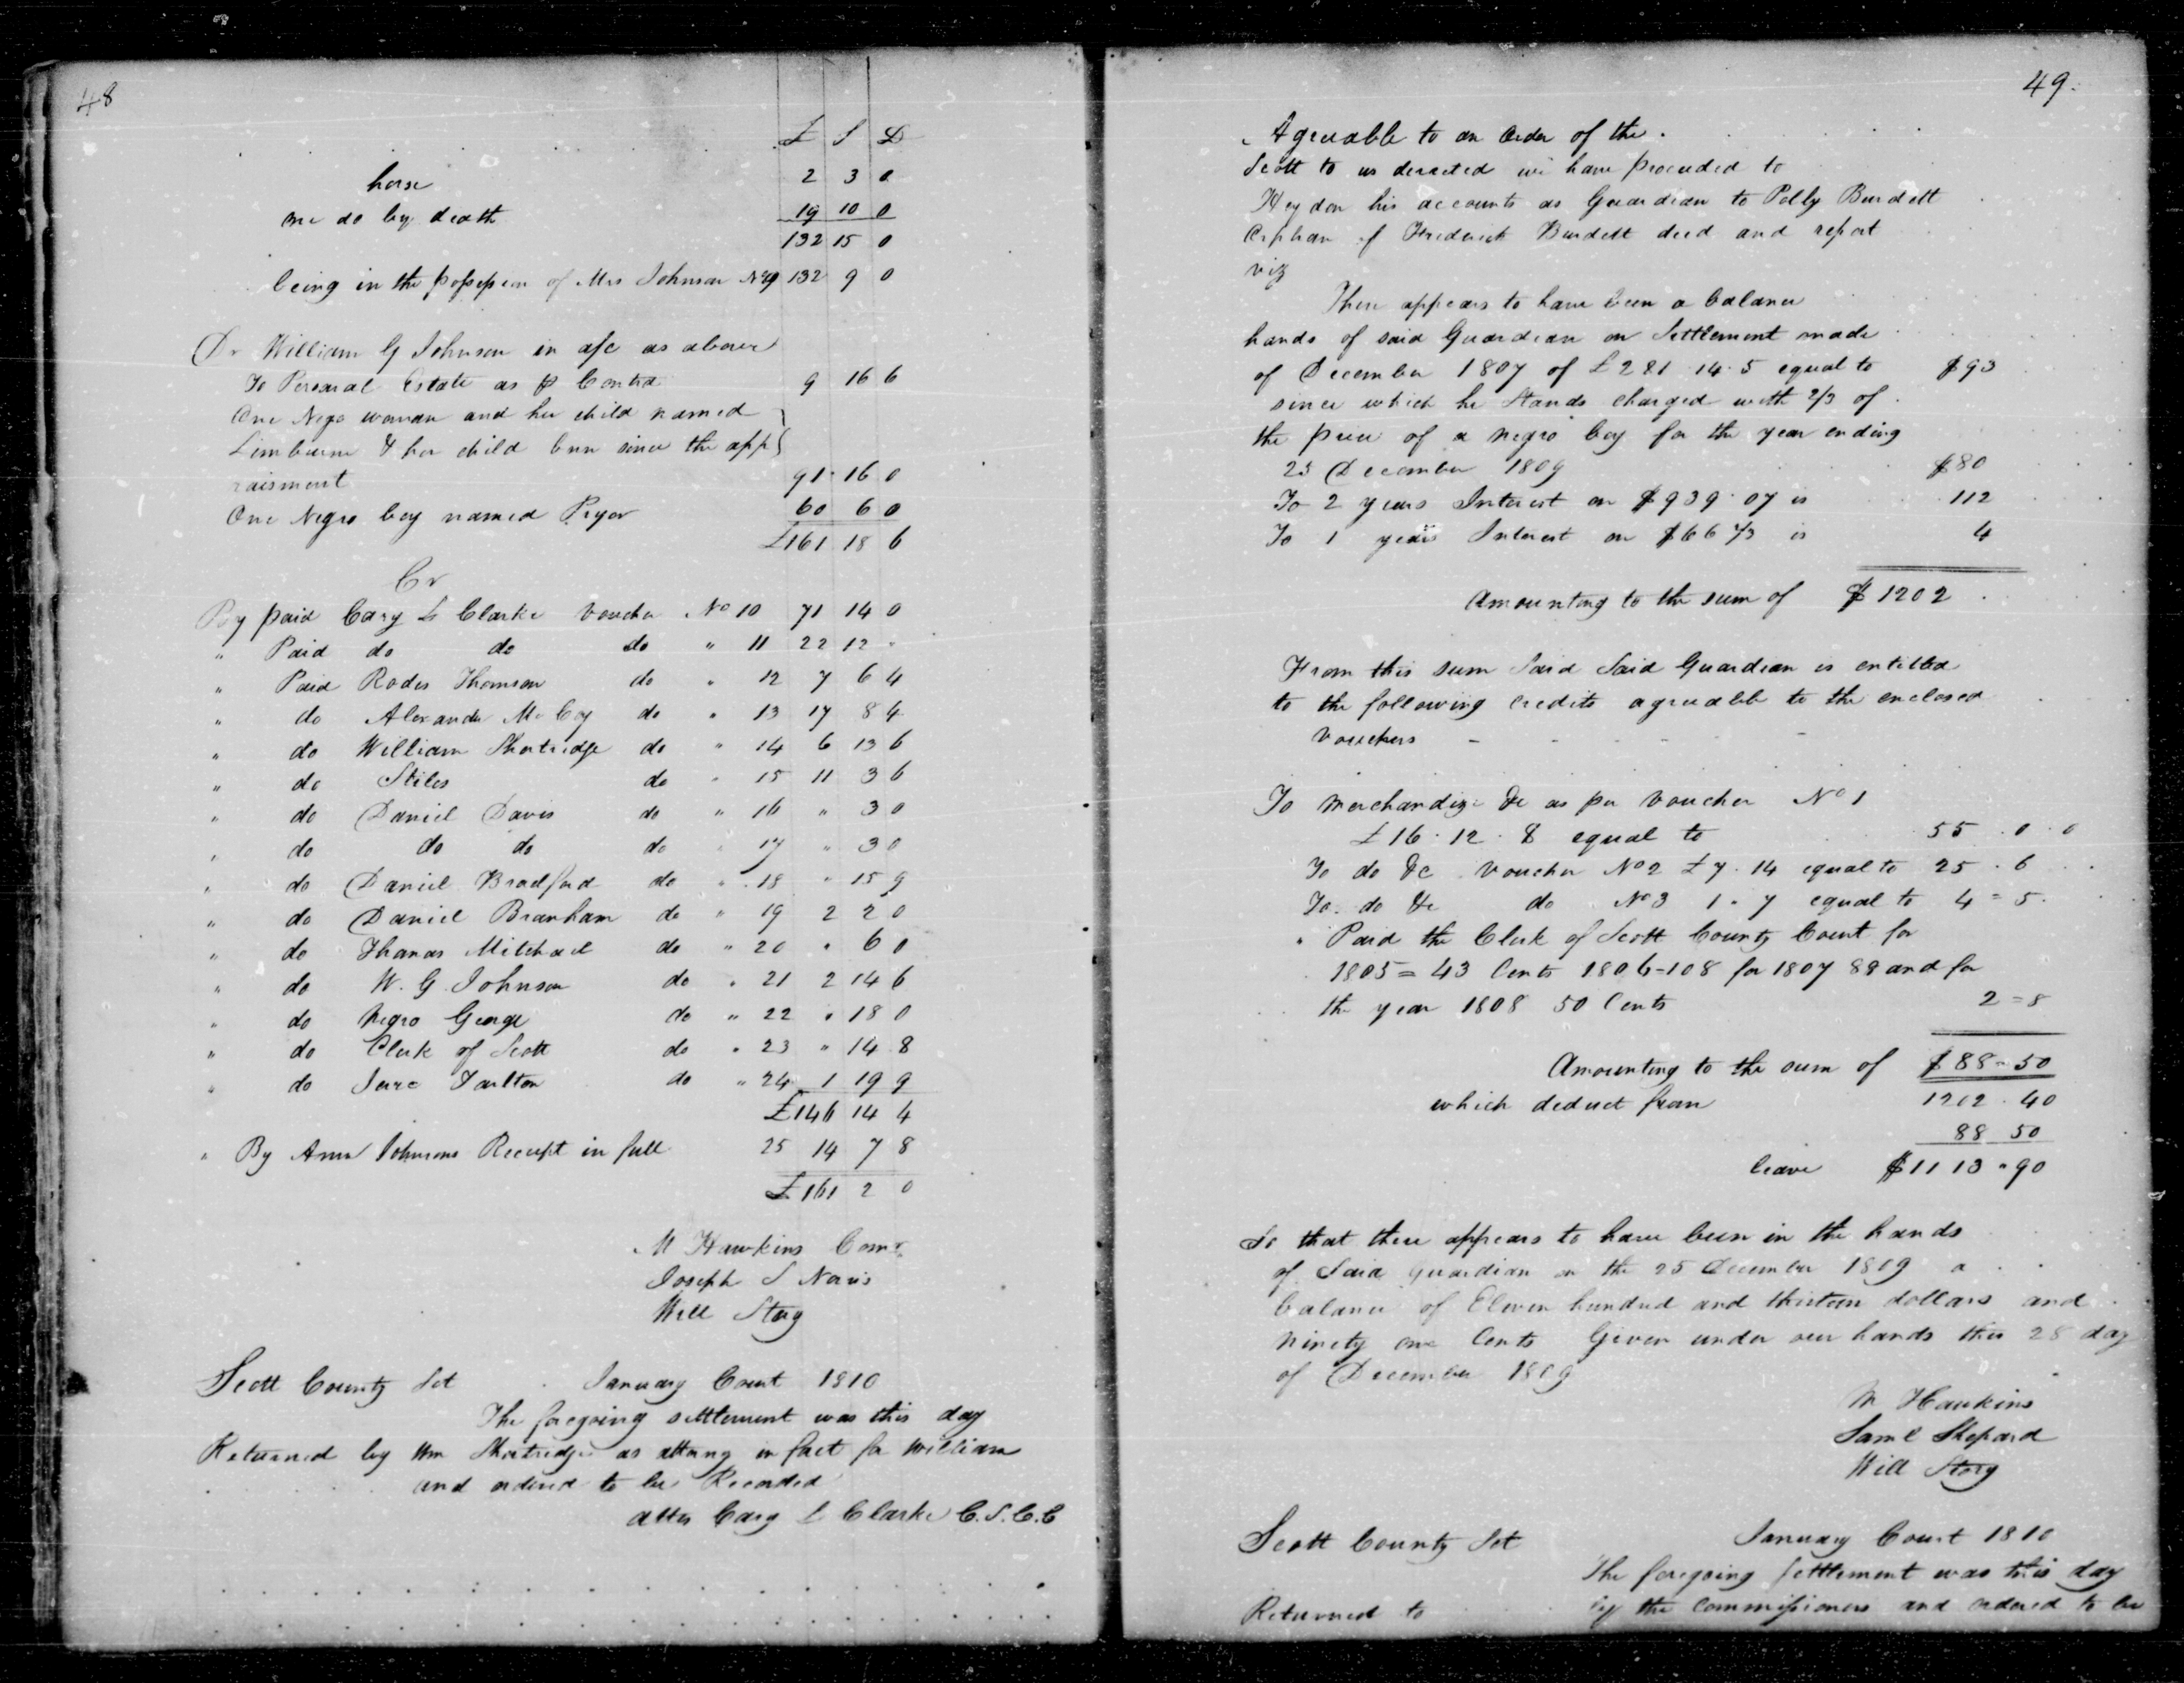 48
£ S D
horse 2 3 0
one do by death 19 10 0
132 15 0
being in the possession of Mrs Johnson No 9 132 9 0
Dr William G Johnson in a/c as above
To Personal Estate as p Contra 9 16 6
One Negro woman and her child named
& her child born since the app
raisment 91 16 0
One Negro boy named Pryor 60 6 0
£161 18 6
Cr
By paid Cary L Clarke Voucher No 10 71 14 0
" Paid do do do " 11 22 12 "
" Paid Rodes Thomson do " 12 7 6 4
" do Alexander McCoy do " 13 17 8 4
" do William Shortridge do " 14 6 13 6
" do Stiles do " 15 11 3 6
" do Daniel Davis do " 16 " 3 0
" do do do do " 17 " 3 0
" do Daniel Bradford do " 18 " 15 9
" do Daniel Branham do " 19 2 2 0
" do Thomas Mitchael do " 20 " 6 0
" do W. G. Johnson do " 21 2 14 6
" do Negro George do " 22 " 18 0
" do Clerk of Scott do " 23 " 14 8
" do Tarlton do " 24 1 19 9
£146 14 4
" By Ann Johnsons Receipt in full 25 14 7 8
£161 2 0
M Hawkins Comr
Joseph S Norris
Will Story
Scott County Sct January Court 1810
The foregoing settlement was this day
Returned by Wm Shortridge as attorny in fact for William
and ordered to be Recorded
attes Cary L Clarke C.S.C.C
49.
Agreeable to an Order of the
Scott to us derected we have proceeded to
Heydon his accounts as Guardian to Polly Burdett
Orphan of Frederick Burdett decd and report
viz
There appears to have been a balance
hands of said Guardian on Settlement made
of December 1807 of £281 14 . 5 equal to $93
since which he Stands charged with 2/3 of
the price of a negro boy for the year ending
25 December 1809 $80
To 2 years Interest on $939 . 07 is 112
To 1 years Interest on $66 2/3 is 4
Amounting to the sum of $1202
From this sum Said Said Guardian is entitled
to the following credits agreeable to the enclosed
Vouchers - - - - - -
To Merchandize &c as per Voucher No 1
£16 . 12 . 8 equal to 55 . 0 . 0
To do &c Voucher No 2 £7 . 14 equal to 25 . 6
To do &c do No 3 1 . 7 equal to 4 = 5
" Paid the Clerk of Scott County Court for
1805 = 43 Cents 1806 - 108 for 1807 88 and for
the year 1808 50 Cents 2 = 8
Amounting to the sum of $88 = 50
which deduct from 1202 . 40
88 50
leave $1113 = 90
So that there appears to have been in the hands
of Said guardian on the 25 December 1809 a
balance of Eleven hundred and thirteen dollars and
ninety one Cents Given under our hands this 28 day
of December 1809
M Hawkins
Saml Shepard
Will Story
Scott County Sct January Court 1810
The foregoing settlement was this day
Returned to by the commissioners and ordered to be